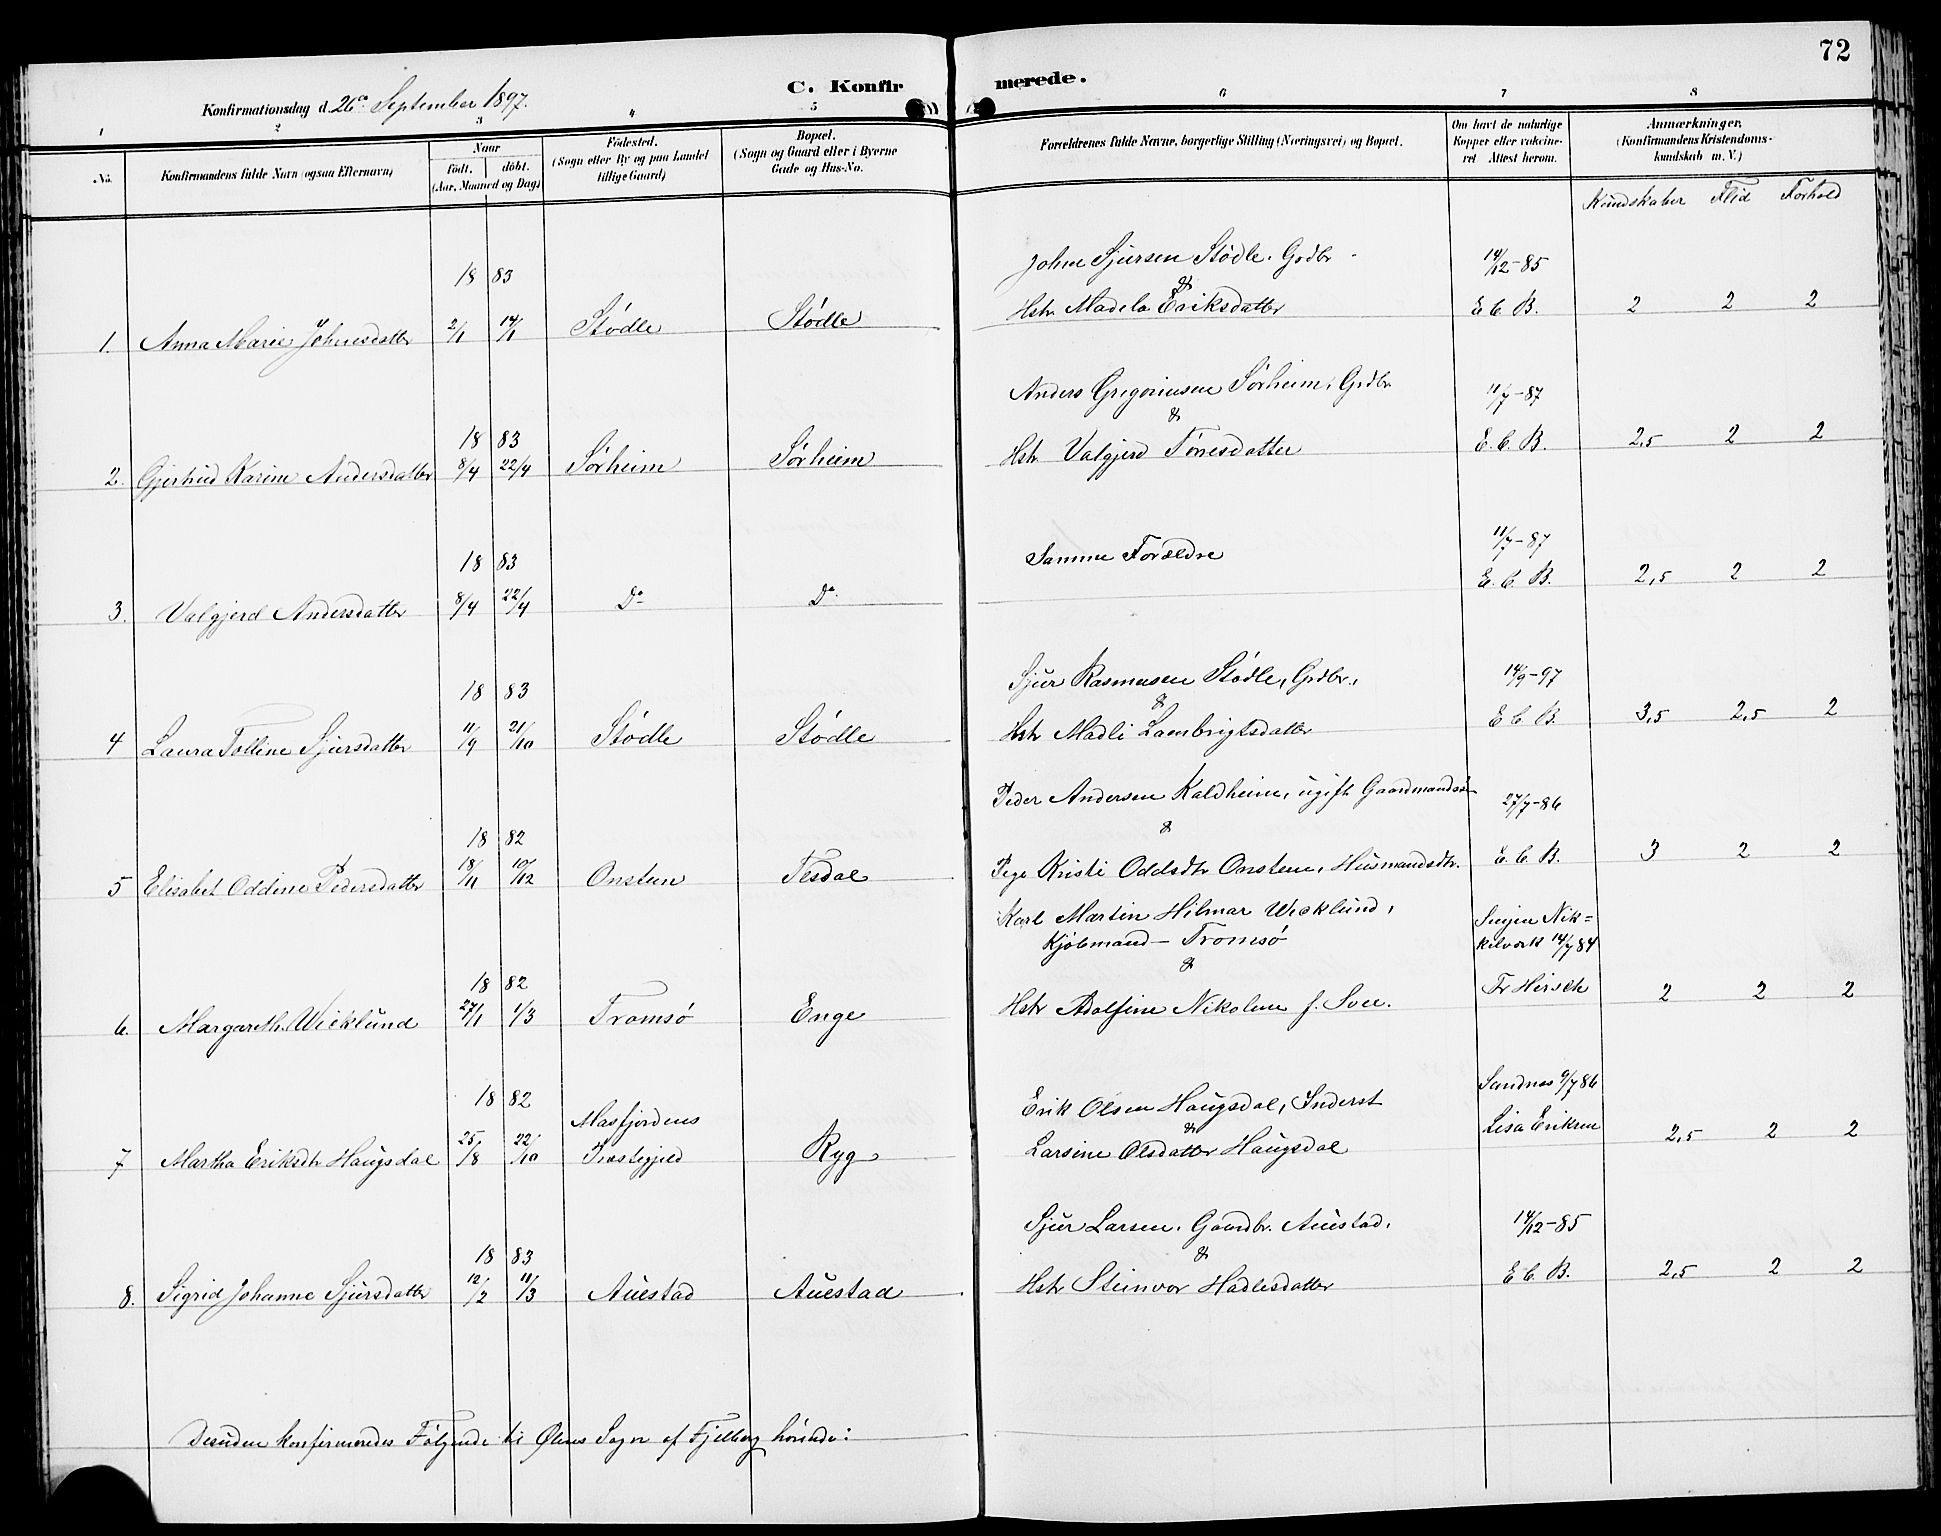 72
C. Konfirmerede.
Konfirmationsdag d. 26de September 1897.
1 2 3 4 5 6 7 8
No. Konfirmandens fulde Navn (ogsaa Efternavn) Naar födt. döbt. (Aar, Maaned og Dag) Födested. (Sogn eller By og paa Landet tillige Gaard) Bopæl. (Sogn og Gaard eller i Byerne Gade og Hus-No. Forældrenes fulde Navne, borgerlige Stilling (Næringsvei) og Bopæl. Om havt de naturlige Kopper eller vakcineret. Attest herom. Anmærkninger. (Konfirmandens Kristendomskundskab m. V.)
Kundskaber Flid Forhold
18 83 Johne Sjursen Stødle. Grdbr 14/12-85
1. Anna Marie Johnesdatter 2/1 14/1 Stødle Stødle & Hstr Madela Eriksdatter E. C. B. 2 2 2
18 83 Anders Gregoriusen Sørheim, Grdbr. 11/7-87
2. Gjertrud Karine Andersdatter 8/4 22/4 Sørheim Sørheim & Hstr. Valgjerd Tørresdatter E. C. B. 2,5 2 2
18 83 Samme Forældre 11/7-87
3. Valgjerd Andersdatter 8/4 22/4 Do Do. E. C. B. 2,5 2 2
18 83 Sjur Rasmusen Stødle, Grdbr., 14/9-97
4 Laura Tolline Sjursdatter 11/9 21/10 Stødle Stødle & Hstr Madli Lambrigtsdatter E C B. 3,5 2,5 2
18 82 Peder Andersen Kaldheim, ugift Gaardmandssøn 27/7-86
5 Elisabet Oddine Pedersdatter 18/11 10/12 Onsteen Tesdal & Pige Kristi Oddsdtr Onsteen, Husmandsdtr. E. C. B. 3 2 2
Karl Martin Hilmar Wicklund, Senjen Nik=
Kjøbmand - Tromsø kelværk 14/7 84
18 82 &
6. Margareth Wicklund 27/1 1/3 Tromsø Enge Hstr Adolfine Nikoline f. Fr Hirsch 2 2 2
18 82 Masfjordens Erik Olsen Haugsdal, Inderst Sandnes 9/7 86
7 Martha Eriksdtr Haugsdal 25/8 22/10 Præstegjeld Ryg & Larsine Olsdatter Haugsdal Lisa Eriksen 2,5 2 2
18 83 Sjur Larsen, Gaardbr. Auestad, 14/12-85
8. Sigrid Johanne Sjursdatter 12/2 11/3 Auestad Auestad & Hstr Steinvor Hadlesdatter E C. B. 2,5 2 2
Desuden konfirmeredes Følgende til Ølens Sogn af Fjelberg hørende: